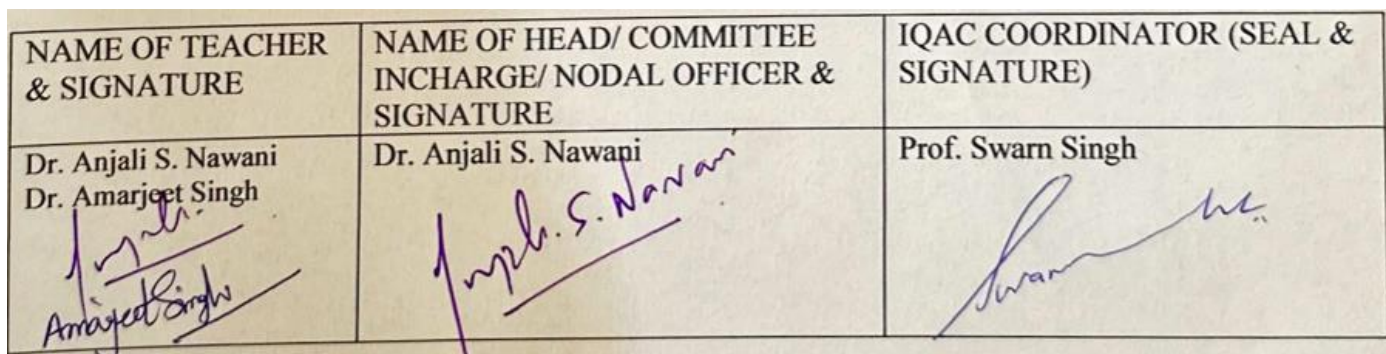 NAME OF TEACHER
& SIGNATURE
NAME OF HEAD/ COMMITTEE
INCHARGE/ NODAL OFFICER &
SIGNATURE
IQAC COORDINATOR (SEAL &
SIGNATURE)
Dr. Anjali S. Nawani
Dr. Amarjeet Singh
Anjali.
Amarjeet Singh
Dr. Anjali S. Nawani
Anjali. S. Nawani
Prof. Swarn Singh
Swarn